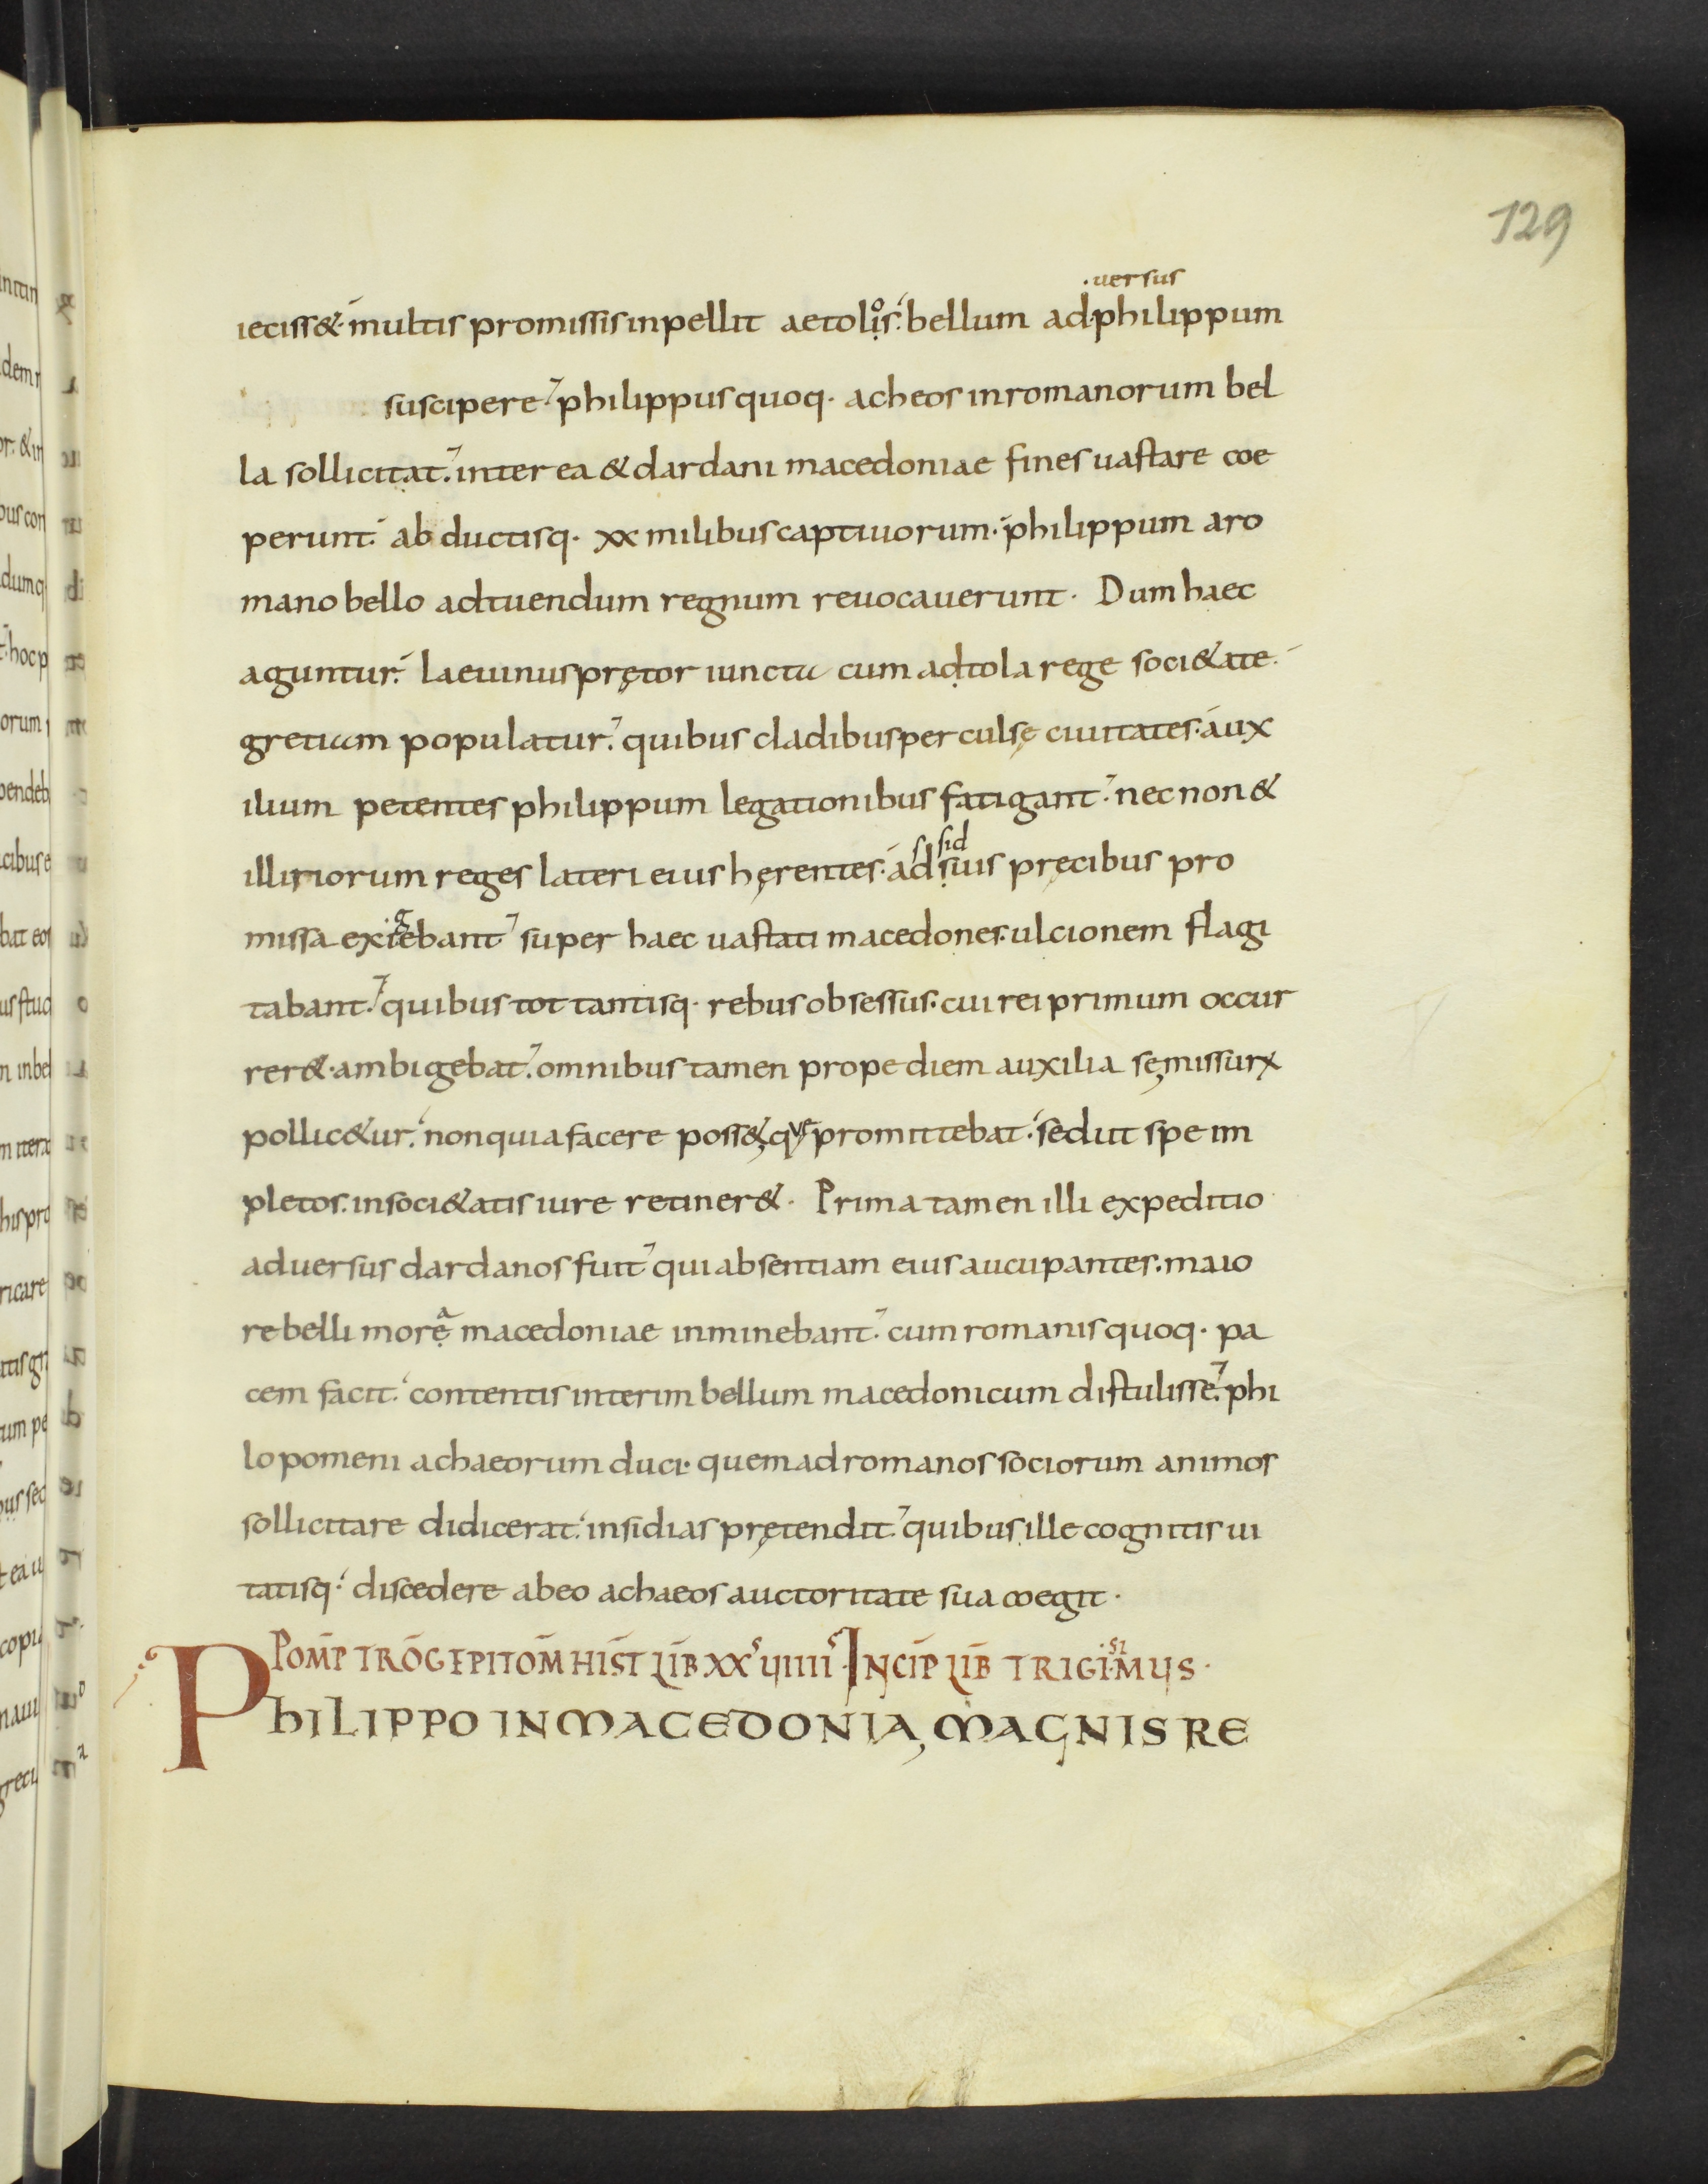 129
·uersus
ieciss&· multis promissis inpellit aetolis· bellum ad philippum
suscipere· philippus quoq· acheos in romanorum bel
la sollicitat· inter ea & dardani macedoniae fines uastare coe
perunt· ab ductisq· xx milibus captiuorum· philippum a ro
mano bello ad tuendum regnum reuocauerunt· Dum haec
aguntur· laeuinus prętor iunctu cum adtola rege soci&ate·
gretium populatur· quibus cladibus per culsę ciuitates· aux
ilium petentes philippum legationibus fatigant· nec non &
illiriorum reges lateri eius hęrentes· ad suis pręcibus pro
missa exiebant· super haec uastati macedones· ulcionem flagi
tabant· quibus tot tantisq· rebus obsessus· cui rei primum occur
rer&· ambigebat· omnibus tamen prope diem auxilia se missurx
pollic&ur· non quia facere poss& quę promittebat· sed ut spe im
pletos· in soci&atis iure retiner&· Prima tamen illi expeditio
aduersus dardanos fuit· qui absentiam eius aucupantes· maio
re belli more macedoniae inminebant· cum romanis quoq· pa
cem facit· contentis interim bellum macedonicum distulisse· phi
lopomeni achaeorum duci· quem ad romanos sociorum animos
sollicitare didicerat· insidias prętendit· quibus ille cognitis ui
tatisq· discedere ab eo achaeos auctoritate sua coegit·
POMP̄ TRŌG EPITOM̄ HIST̄ LIB̄ XXUIIII· INCIP̄ LIB̄ TRIGIMUS·
PHILIPPO IN MACEDONIA, MAGNIS RE